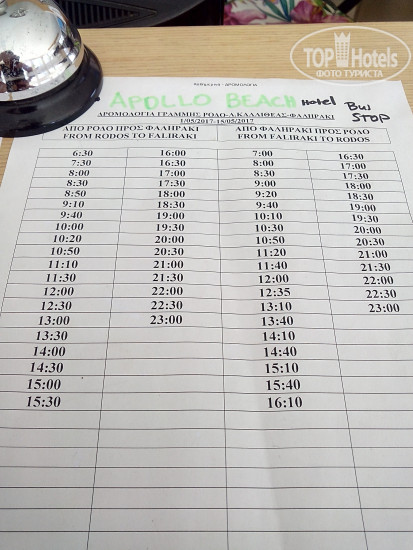 TOP Hotels
ФОТО ТУРИСТА
APOLLO BEACH Hotel Bus STOP
ΔΡΟΜΟΛΟΓΙΑ ΓΡΑΜΜΗΣ ΡΟΔΟ-Λ.ΚΑΛΛΙΘΕΑΣ-ΦΑΛΗΡΑΚΙ
1/05/2017-15/05/2017
ΑΠΟ ΡΟΔΟ ΠΡΟΣ ΦΑΛΗΡΑΚΙ ΑΠΟ ΦΑΛΗΡΑΚΙ ΠΡΟΣ ΡΟΔΟ
FROM RODOS TO FALIRAKI FROM FALIRAKI TO RODOS
6:30 16:00 7:00 16:30
7:30 16:30 8:00 17:00
8:00 17:00 8:30 17:30
8:30 17:30 9:00 18:00
8:50 18:00 9:20 18:30
9:10 18:30 9:40 19:00
9:40 19:00 10:10 19:30
10:00 19:30 10:30 20:00
10:20 20:00 10:50 20:30
10:50 20:30 11:20 21:00
11:10 21:00 11:40 21:30
11:30 21:30 12:00 22:00
12:00 22:00 12:35 22:30
12:30 22:30 13:10 23:00
13:00 23:00 13:40
13:30 14:10
14:00 14:40
14:30 15:10
15:00 15:40
15:30 16:10